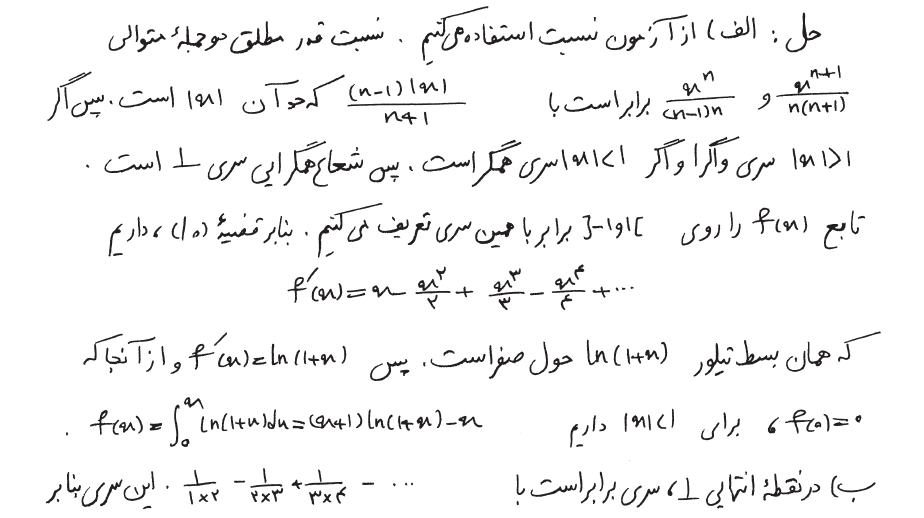 حل : الف) از آزمون نسبت استفاده می‌کنیم . نسبت قدر مطلق دو جملهٔ متوالی
x^(n+1)/n(n+1) و x^n/(n-1)n برابر است با (n-1)|x|/n+1 که حد آن |x| است . پس اگر
|x|>1 سری واگرا و اگر |x|<1 سری همگراست . پس شعاع همگرایی سری 1 است .
تابع f(x) را روی ]-1و1[ برابر با همین سری تعریف می‌کنیم . بنابر قضیهٔ (10) ، داریم
f′(x) = x - x^۲/۲ + x^۳/۳ - x^۴/۴ + ...
که همان بسط تیلور ln(1+x) حول صفر است . پس f′(x) = ln(1+x) و از آنجا که
f(0)=0 ، برای |x|<1 داریم f(x) = ∫_0^x ln(1+u)du = (x+1)ln(1+x) - x .
ب) در نقطهٔ انتهایی 1 ، سری برابر است با 1/1×۲ - 1/۲×۳ + 1/۳×۴ - ... . این سری بنابر